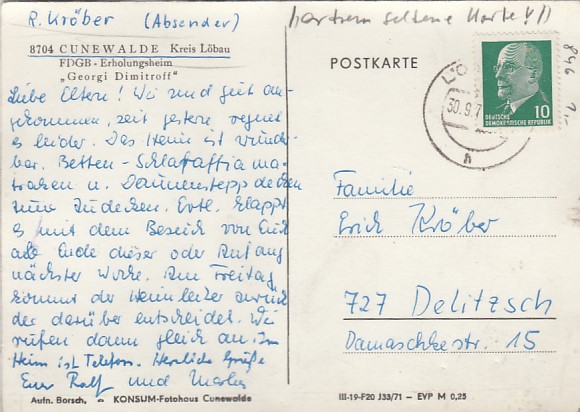 R. Kröber (Absender)
8704 CUNEWALDE Kreis Löbau
FDGB - Erholungsheim
„Georgi Dimitroff"
Liebe Eltern! Wir sind gut an-
gekommen, seit gestern regnet
es leider. Das Heim ist wunder-
bar. Betten - Schlaraffia ma-
tratzen u. Daunensteppdecken
zum Zudecken. Evtl. klappt
es mit dem Besuch von Euch
ab Ende dieser oder Anfang
nächster Woche. Am Freitag
kommt der Heimleiter zurück
der darüber entscheidet. Wir
rufen dann gleich an. Im
Heim ist Telefon. Herzliche Grüße
Euer Ralf und
Aufn. Borsch, KONSUM-Fotohaus Cunewalde
seltene Karte !!
POSTKARTE
30.9.7
10
DEUTSCHE
DEMOKRATISCHE REPUBLIK
846
Familie
Erich Kröber
727 Delitzsch
Damaschkestr. 15
III-19-F20 J33/71 - EVP M 0,25